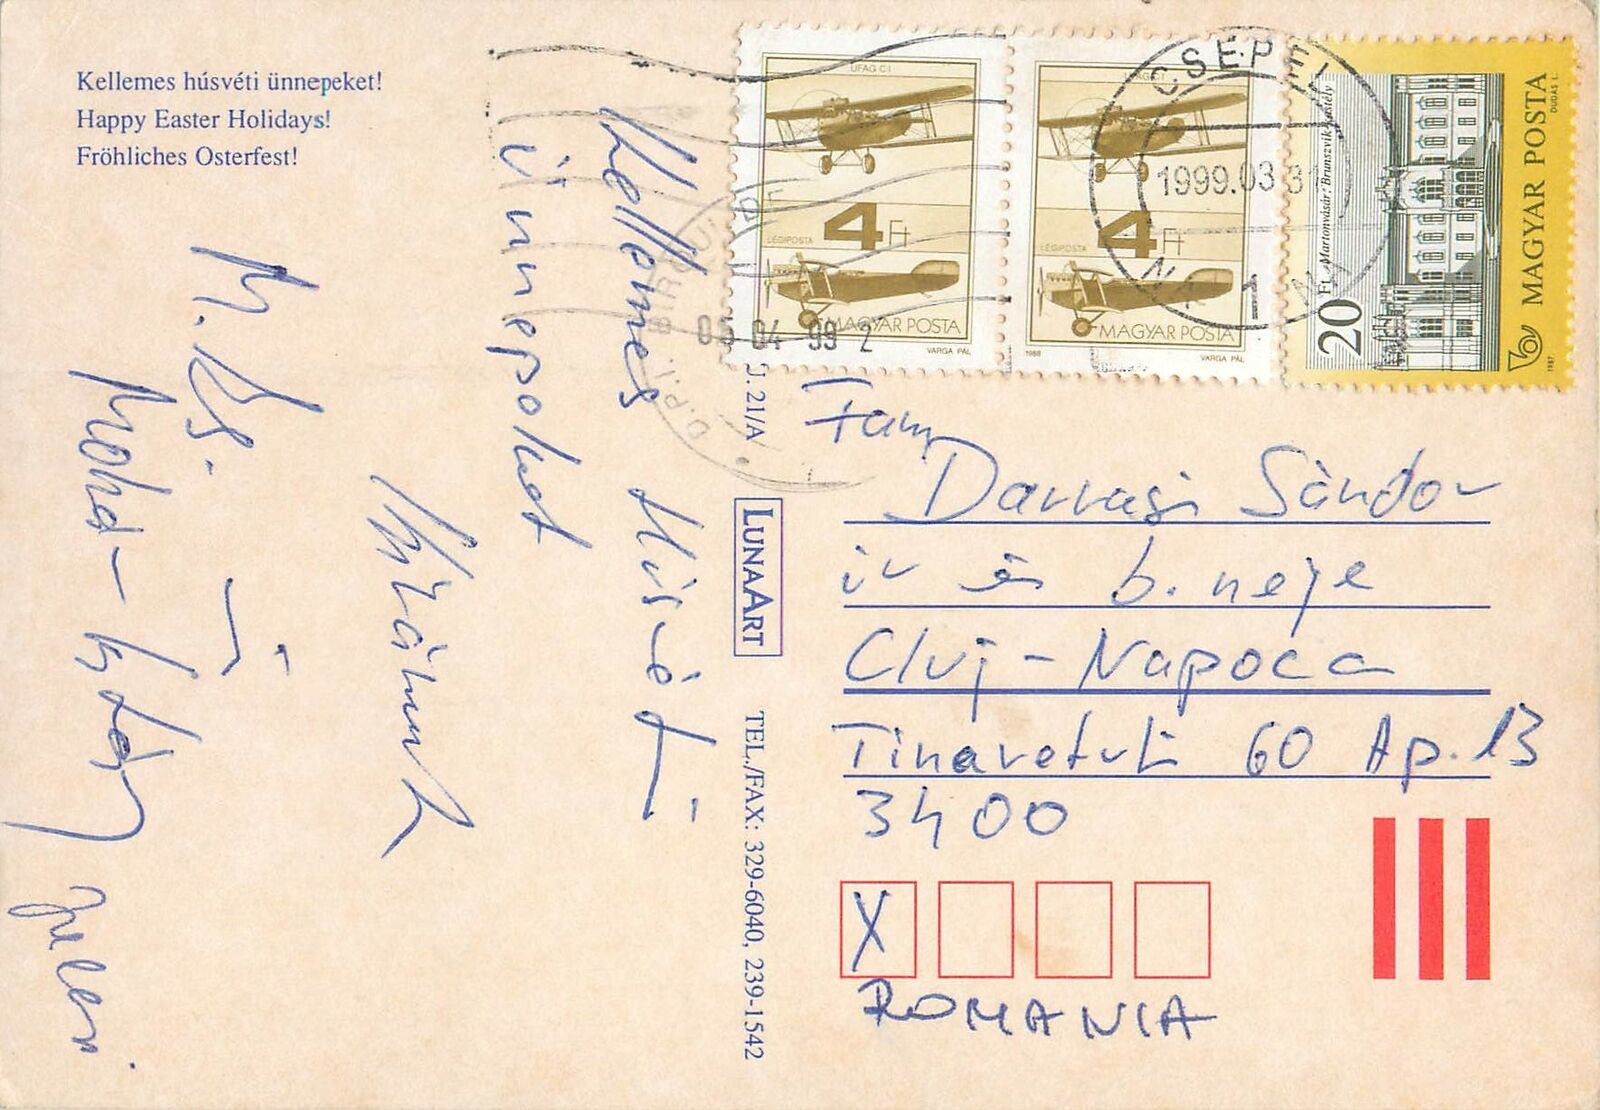 Kellemes húsvéti ünnepeket!
Happy Easter Holidays!
Fröhliches Osterfest!
Kellemes Húsvéti
ünnepeket
Kívánunk
M. Bs.
J. 21/A
LUNAART
TEL./FAX: 329-6040, 239-1542
UFAG C-I
LÉGIPOSTA
4 Ft
MAGYAR POSTA
VARGA PÁL
LÉGIPOSTA
4 Ft
MAGYAR POSTA
1988
VARGA PÁL
20 Ft Martonvásár: Brunszvik-kastély
MAGYAR POSTA
DUDÁS L.
1987
CSEPEL
1999.03 31
1
05 04 99 2
Fam
Darvasi Sándor
úr és b. neje
Cluj-Napoca
Tineretului 60 Ap. 13
3400
X
ROMANIA